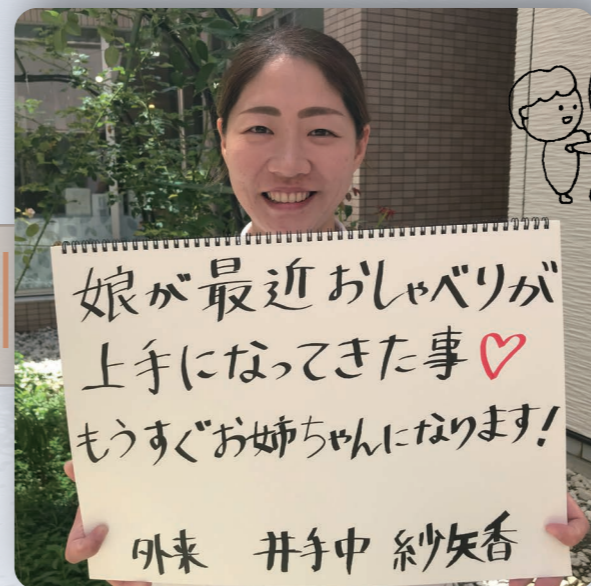 娘が最近おしゃべりが
上手になってきた事♡
もうすぐお姉ちゃんになります!
外来 井手中 紗矢香